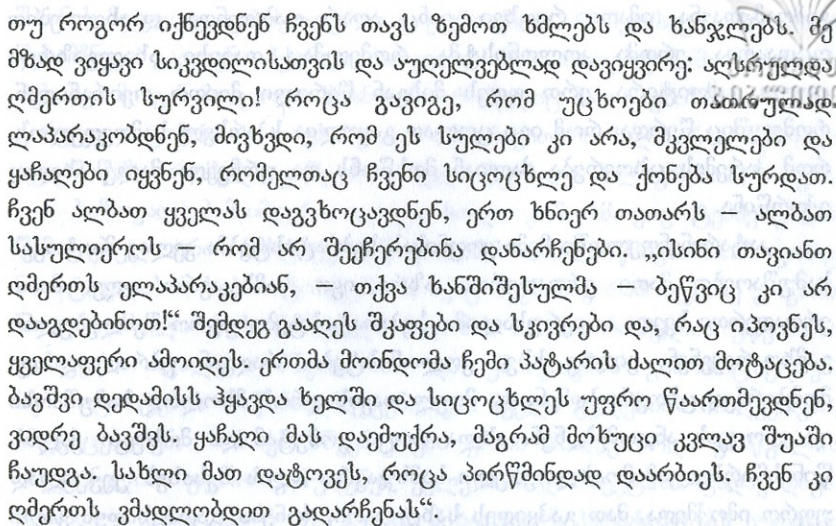 თუ როგორ იქნევდნენ ჩვენს თავს ზემოთ ხმლებს და ხანჯლებს. მე
მზად ვიყავი სიკვდილისათვის და აუღელვებლად დავიყვირე: აღსრულდა
ღმერთის სურვილი! როცა გავიგე, რომ უცხოები თათრულად
ლაპარაკობდნენ, მივხვდი, რომ ეს სულები კი არა, მკვლელები და
ყაჩაღები იყვნენ, რომელთაც ჩვენი სიცოცხლე და ქონება სურდათ.
ჩვენ ალბათ ყველას დაგვხოცავდნენ, ერთ ხნიერ თათარს – ალბათ
სასულიეროს – რომ არ შეეჩერებინა დანარჩენები. „ისინი თავიანთ
ღმერთს ელაპარაკებიან, – თქვა ხანშიშესულმა – ბეწვიც კი არ
დააგდებინოთ!“ შემდეგ გააღეს შკაფები და სკივრები და, რაც იპოვნეს,
ყველაფერი ამოიღეს. ერთმა მოინდომა ჩემი პატარის ძალით მოტაცება.
ბავშვი დედამისს ჰყავდა ხელში და სიცოცხლეს უფრო წაართმევდნენ,
ვიდრე ბავშვს. ყაჩაღი მას დაემუქრა, მაგრამ მოხუცი კვლავ შუაში
ჩაუდგა. სახლი მათ დატოვეს, როცა პირწმინდად დაარბიეს. ჩვენ კი
ღმერთს ვმადლობდით გადარჩენას“.